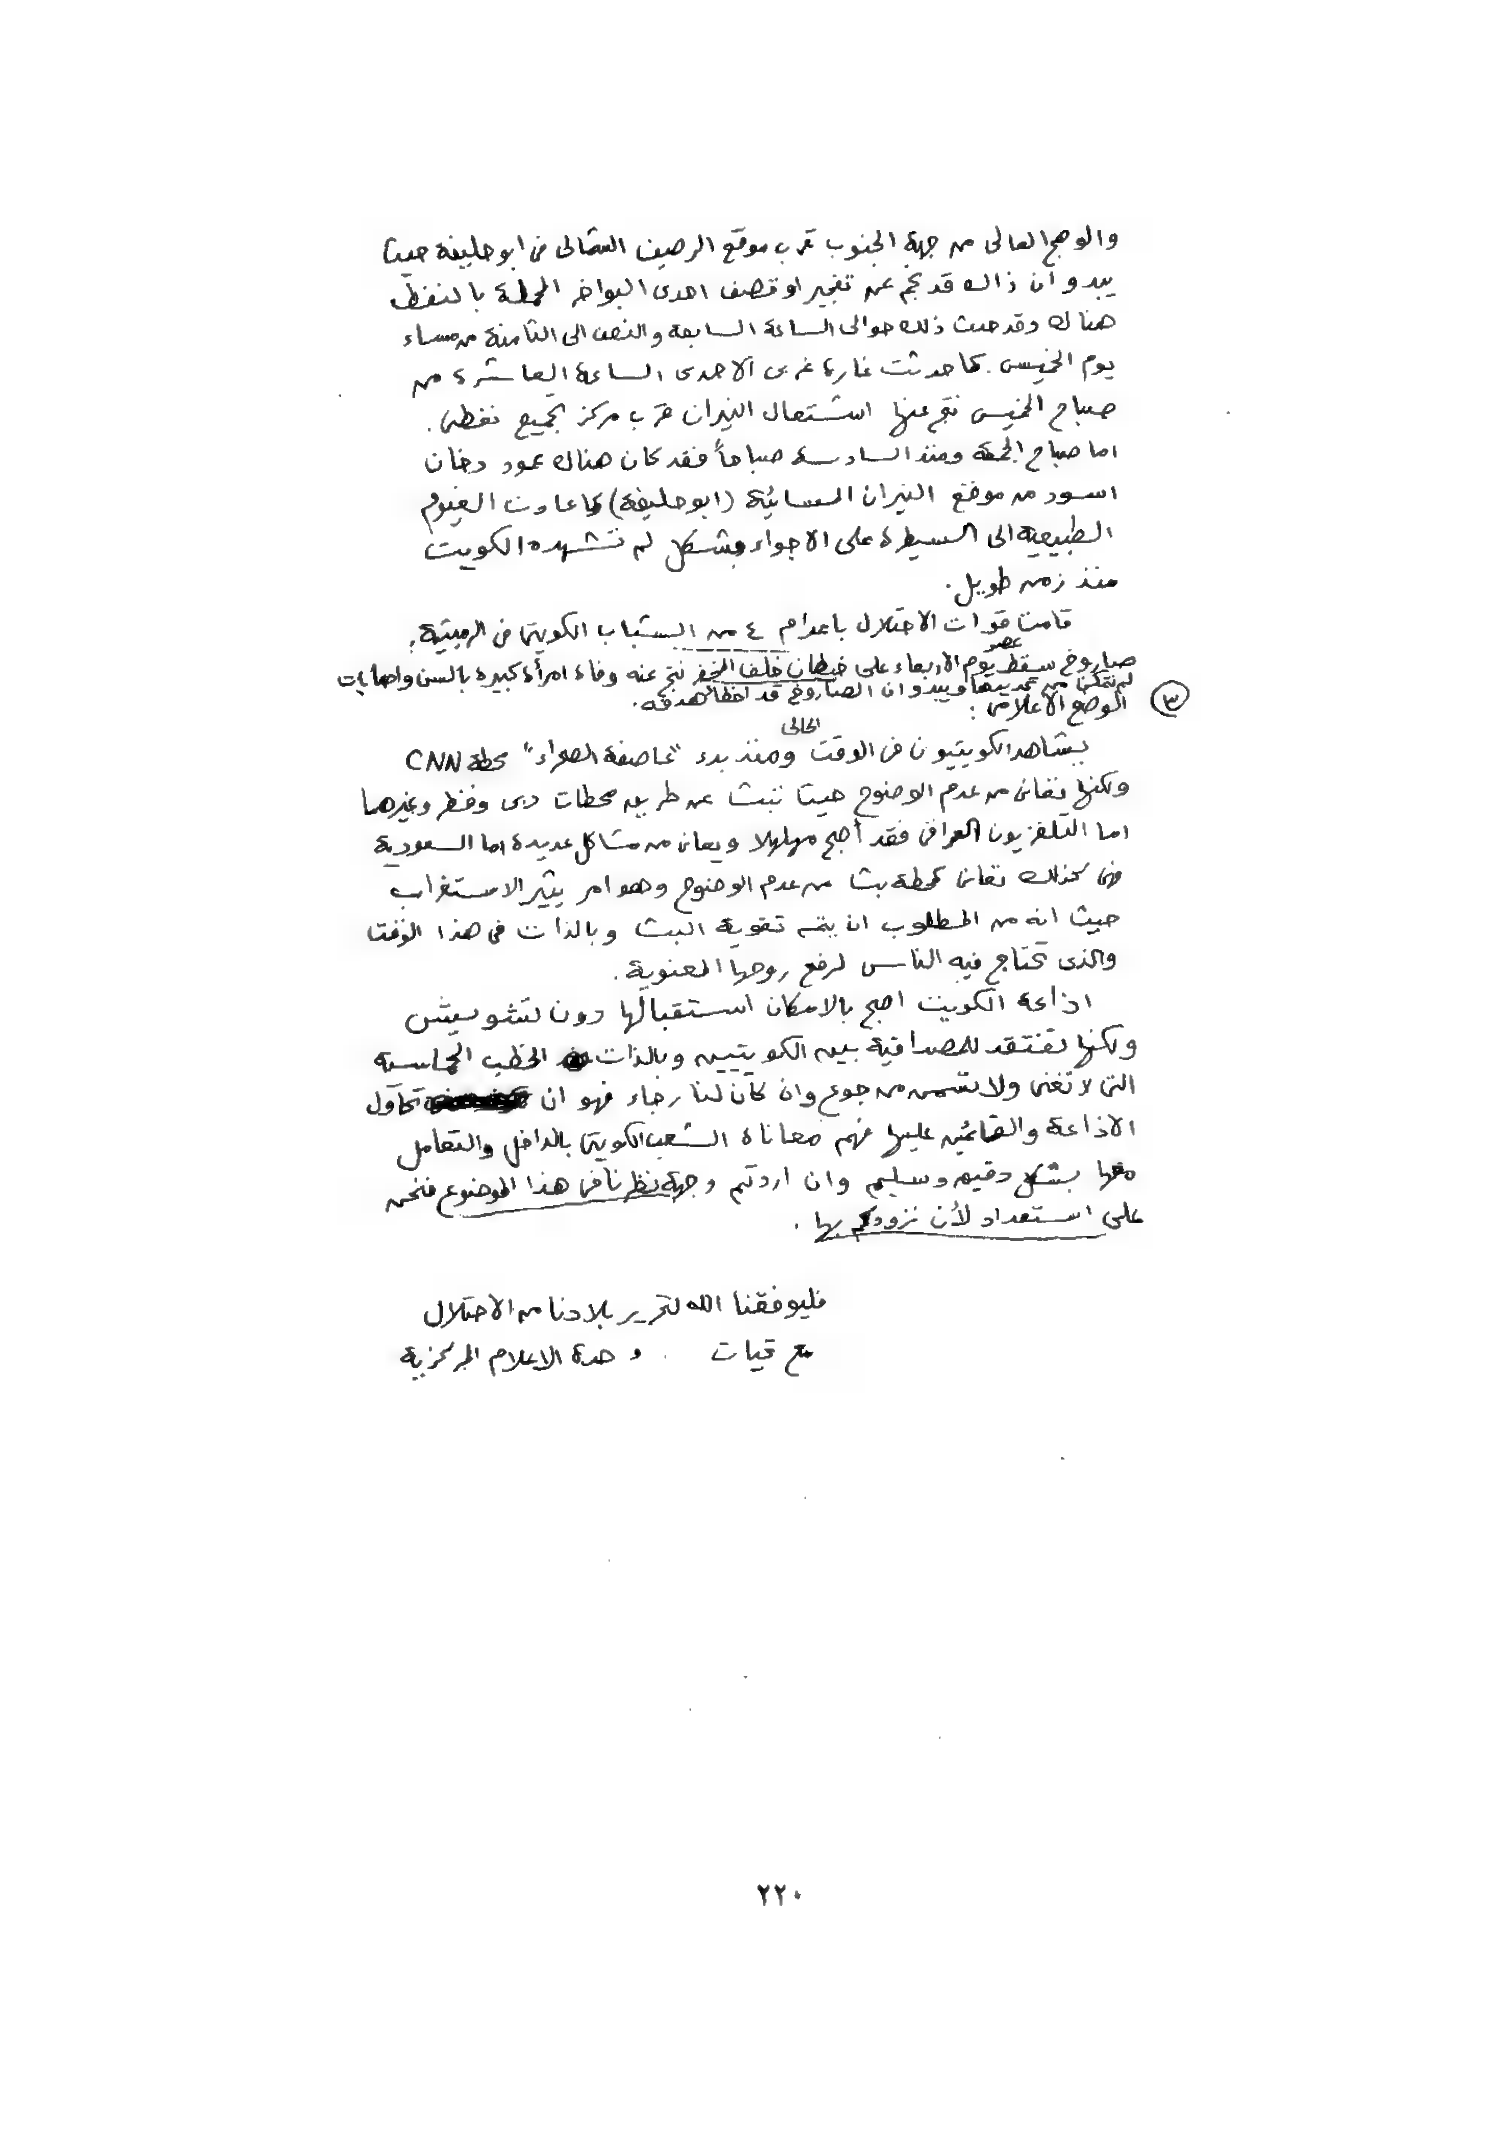 والوهج العالى من جهة الجنوب قرب موقع الرصيف الشمالى فى ابو حليفة حيث
يبدو أن ذالك قد نجم عن تفجير او قصف احدى البواخر المحملة بالنفط
هناك وقد حدث ذلك حوالى الساعة السابعة والنصف الى الثامنة من مساء
يوم الخميس. كما حدثت غارة اخرى الساعة العاشرة من
صباح الخميس نتج عنها اشتعال النيران قرب مركز تجميع نفطى.
اما صباح الجمعة ومنذ السادسة صباحاً فقد كان هناك عمود دخان
اسود من موقع النيران المسائية (ابو حليفة) كما عادت الغيوم
الطبيعية الى السيطرة على الاجواء بشكل لم تشهده الكويت
منذ زمن طويل.
قامت قوات الاحتلال باعدام ٤ من الشباب الكويتى فى الرميثية.
صاروخ سقط عصر يوم الاربعاء على خيطان خلف المخفر نتج عنه وفاة امرأة كبيرة بالسن واصابات
لم نتمكن من تحديدها ويبدو ان الصاروخ قد اخطأ هدفه.
٣ الوضع الاعلامى:
يشاهد الكويتيون فى الوقت الحالى ومنذ بدء "عاصفة الصحراء" محطة CNN
ولكنها تعانى من عدم الوضوح حيث تبث عن طريق محطات دبى وقطر وغيرهما
اما التلفزيون العراقى فقد أصبح مهلهلا ويعانى من مشاكل عديدة اما السعودية
فهى كذلك تعانى كمحطة بث من عدم الوضوح وهو امر يثير الاستغراب
حيث انه من المطلوب ان يتم تقوية البث وبالذات فى هذا الوقت
والذى تحتاج فيه الناس لرفع روحها المعنوية.
اذاعة الكويت اصبح بالامكان استقبالها دون تشويش
ولكنها تفتقد للمصداقية بين الكويتيين وبالذات الخطب الحماسية
التى لا تغنى ولا تسمن من جوع وان كان لنا رجاء فهو ان تحاول
الاذاعة والقائمين عليها فهم معاناة الشعب الكويتى بالداخل والتعامل
معها بشكل دقيق وسليم وان اردتم وجهة نظرنا فى هذا الموضوع فنحن
على استعداد لأن نزودكم بها.
فليوفقنا الله لتحرير بلادنا من الاحتلال
مع تحيات وحدة الاعلام المركزية
٢٢٠